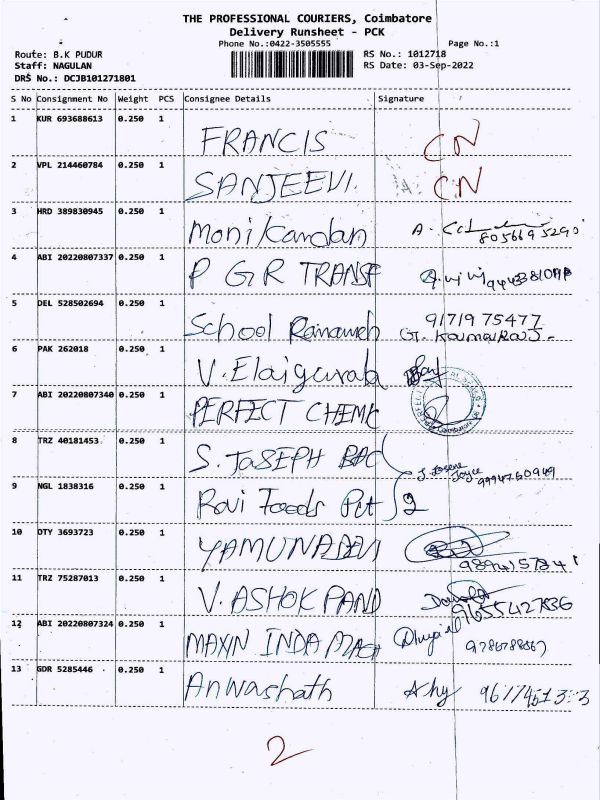 THE PROFESSIONAL COURIERS, Coimbatore
Delivery Runsheet - PCK
Phone No.:0422-3505555 Page No.:1
Route: B.K PUDUR RS No.: 1012718
Staff: NAGULAN RS Date: 03-Sep-2022
DRS No.: DCJB101271801
S No Consignment No Weight PCS Consignee Details Signature
1 KUR 693688613 0.250 1 FRANCIS CN
2 VPL 214460784 0.250 1 SANJEEVI. CN
3 HRD 389830945 0.250 1 Manikandan A.
8056695290
4 ABI 20220807337 0.250 1 P G R TRANSP
5 DEL 528502694 0.250 1 School 9171975477
GT. KumaRaJ-
6 PAK 262018 0.250 1 V. Elaigurab
7 ABI 20220807340 0.250 1 PERFECT CHEMC
Coimbatore
8 TRZ 40181453 0.250 1 S. JOSEPH J.
Joyce 9994760949
9 NGL 1838316 0.250 1 Ravi Foods Pvt 2
10 OTY 3693723 0.250 1 YAMUNADEVI
11 TRZ 75287013 0.250 1 V. ASHOK PAND
9655427836
12 ABI 20220807324 0.250 1 MAXIN INDA
13 GDR 5285446 0.250 1 Anwashath
2